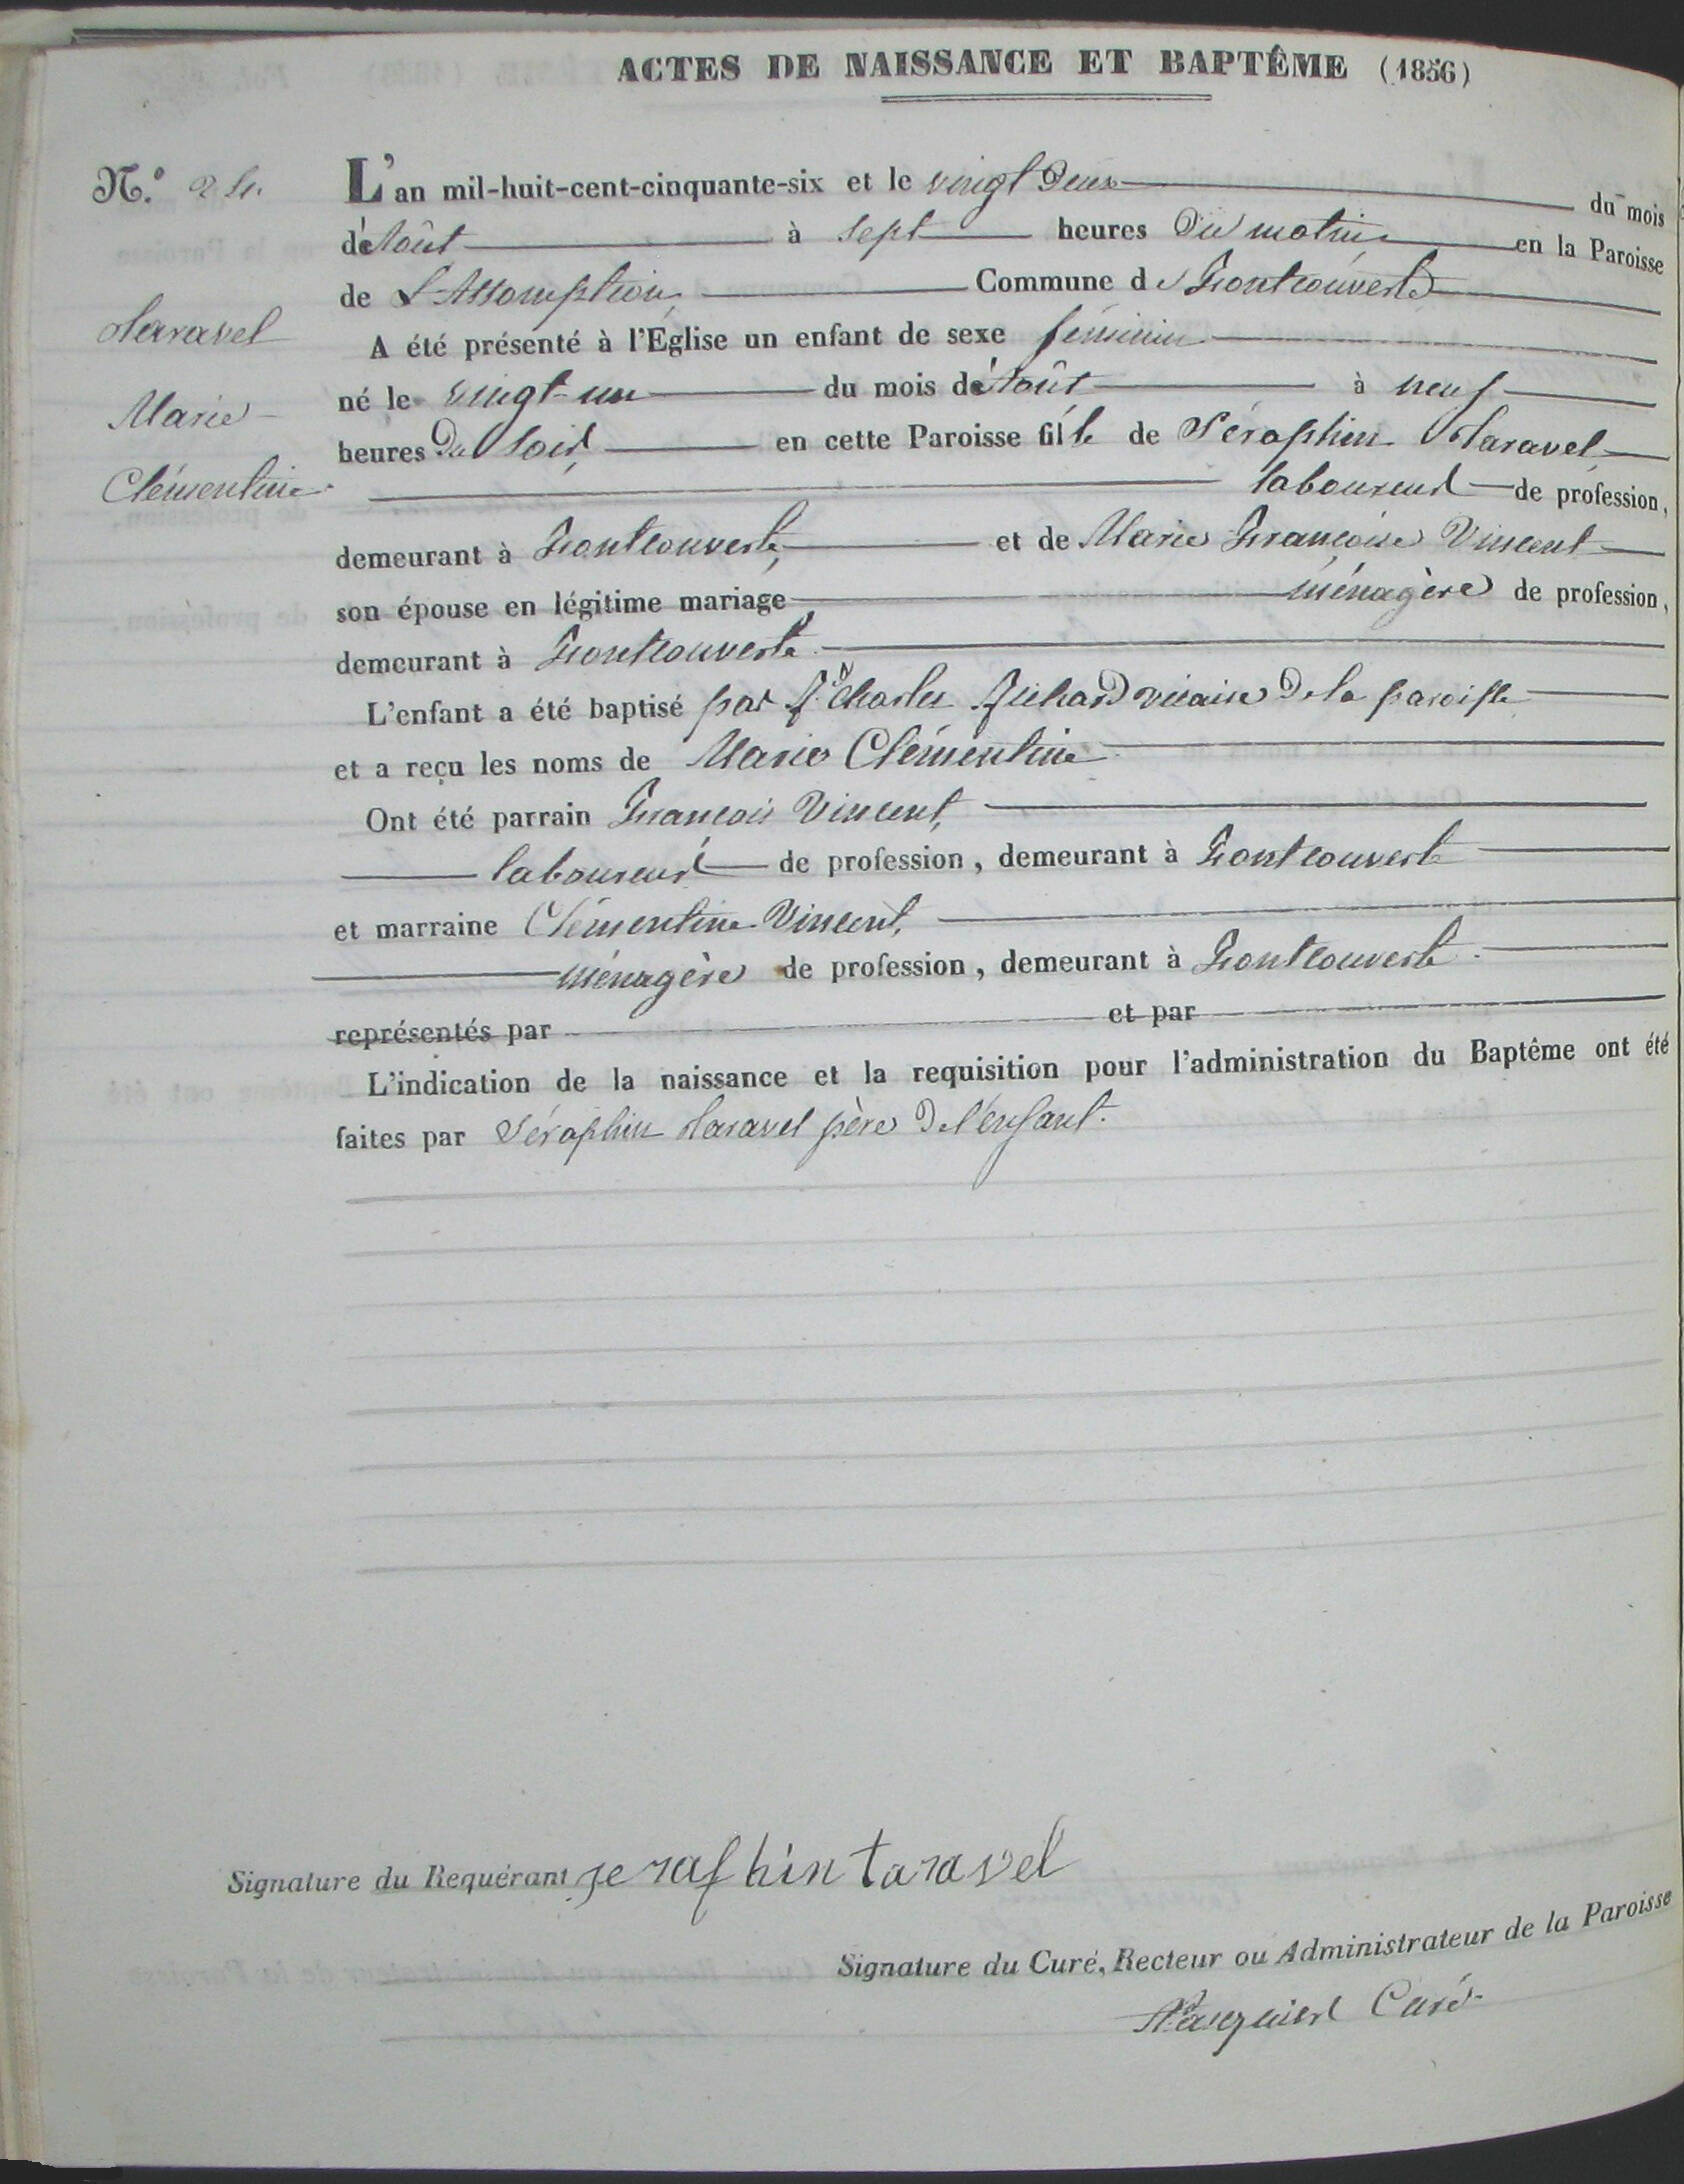 ACTES DE NAISSANCE ET BAPTÊME (1856)
N.° 24.
L'an mil-huit-cent-cinquante-six et le vingt deux du mois
d'août à sept heures du matin en la Paroisse
de L'Assomption Commune de Fontcouverte
Taravel
A été présenté à l'Eglise un enfant de sexe féminin
né le vingt-un du mois d'août à neuf
Marie
heures du soir, en cette Paroisse fille de Séraphin Taravel
Clémentine
laboureur de profession,
demeurant à Fontcouverte, et de Marie Françoise Vincent
son épouse en légitime mariage ménagère de profession,
demeurant à Fontcouverte.
L'enfant a été baptisé par Charles Richard vicaire de la paroisse
et a reçu les noms de Marie Clémentine
Ont été parrain François Vincent,
laboureur de profession, demeurant à Fontcouverte
et marraine Clémentine Vincent,
ménagère de profession, demeurant à Fontcouverte.
représentés par et par
L'indication de la naissance et la requisition pour l'administration du Baptême ont été
faites par Séraphin Taravel père de l'enfant.
Signature du Requérant seraphin taravel
Signature du Curé, Recteur ou Administrateur de la Paroisse
Curé